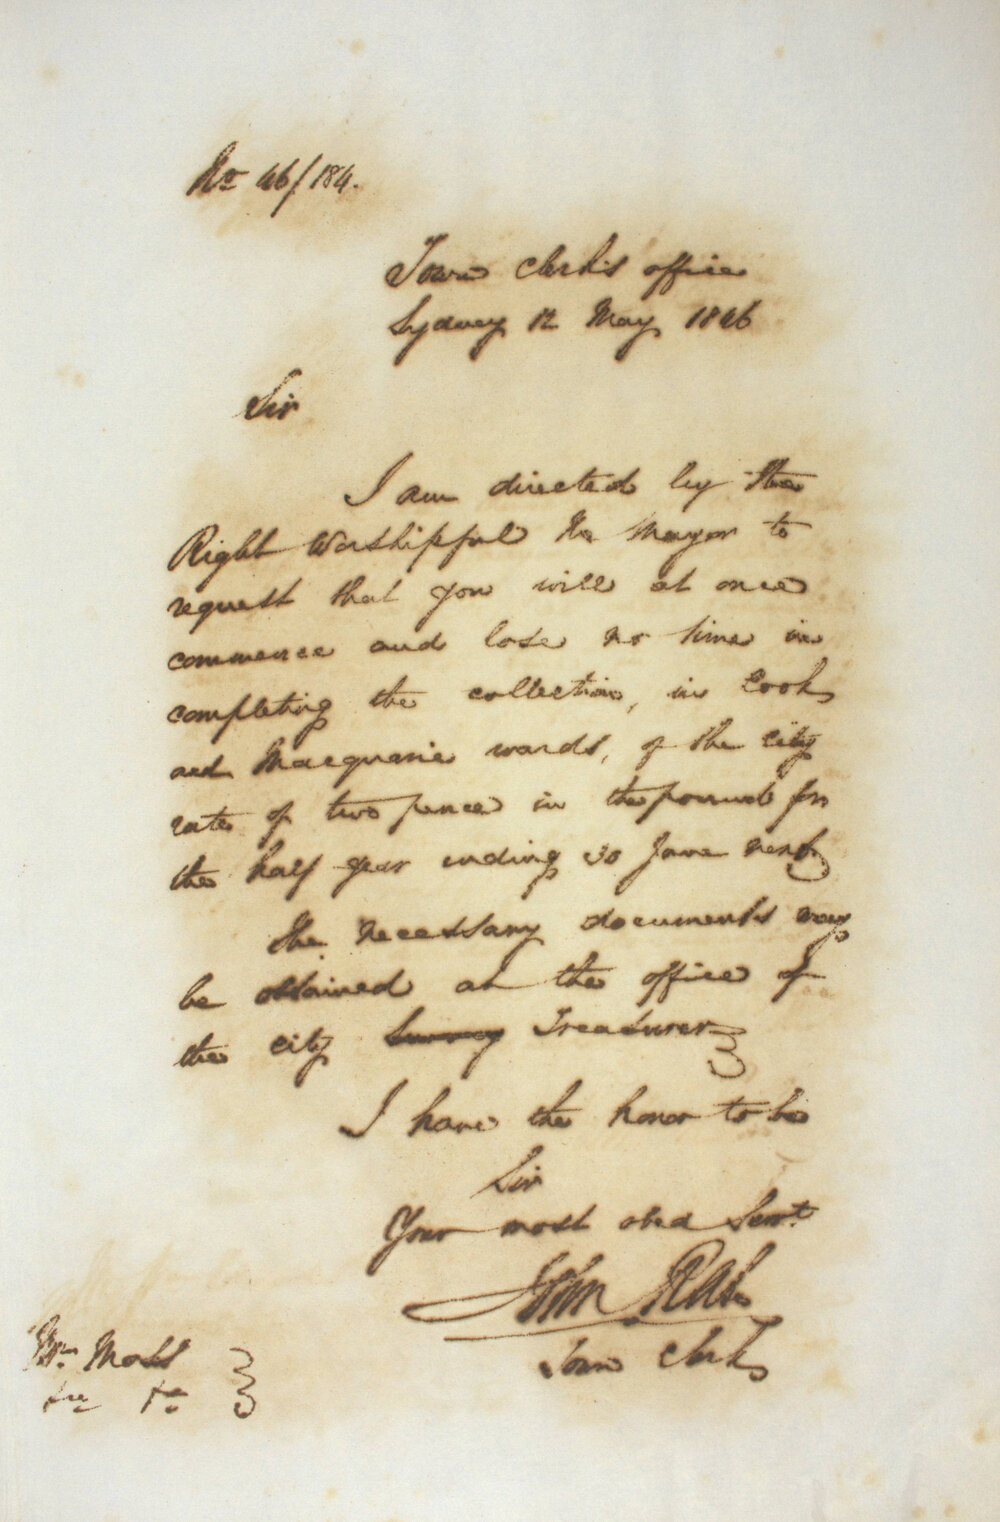 No 46/184.
Town Clerk's office
Sydney 12 May 1846
Sir
I am directed by the
Right Worshipful the Mayor to
request that you will at once
commence and lose no time in
completing the collection, in Cook
and Macquarie wards, of the city
rates of two pence in the pound for
the half year ending 30 June next
The necessary documents may
be obtained at the office of
the city Survey Treasurer
I have the honor to be
Sir
Your most obed Servt.
John Rae
Town Clerk
Mr. Moss